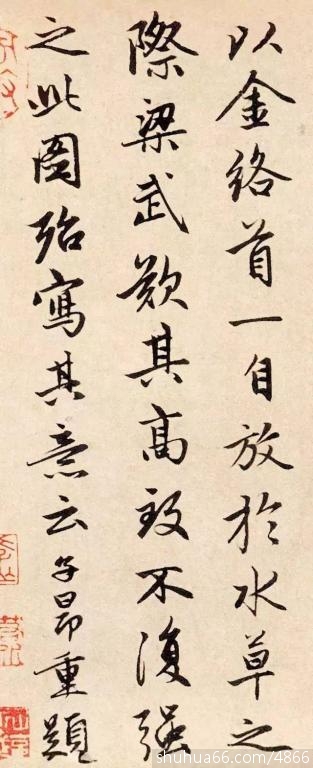 以金络首一自放於水草之
際梁武歎其高致不復強
之此圖殆寫其意云子昂重題
shuhua66.com/4866